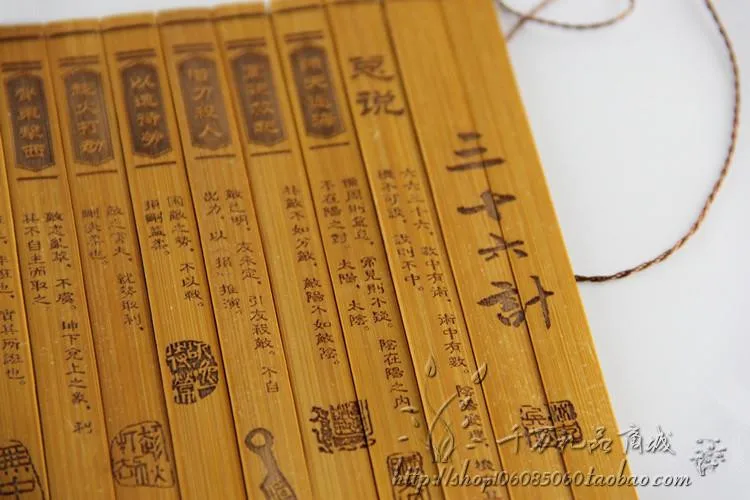 三十六計
六六三十六，數中有術，術中有數。陰陽燮理，機
機不可設，設則不中。
總说
備周則意怠，常見則不疑。陰在陽之内，
不在陽之對。太陽，太陰。
共敵不如分敵，敵陽不如敵陰。
借刀殺人
敵已明，友未定，引友殺敵。不自
出力，以損推演。
以逸待勞
困敵之勢，不以戰。
損剛益柔。
趁火打劫
敵之害大，就勢取利，
剛夬柔也。
聲東擊西
敵志亂萃，不虞。坤下兌上之象，利
其不自主而取之
誑也，非誑也，實其所誑也。
千方礼品商城
http://shop106085060.taobao.com